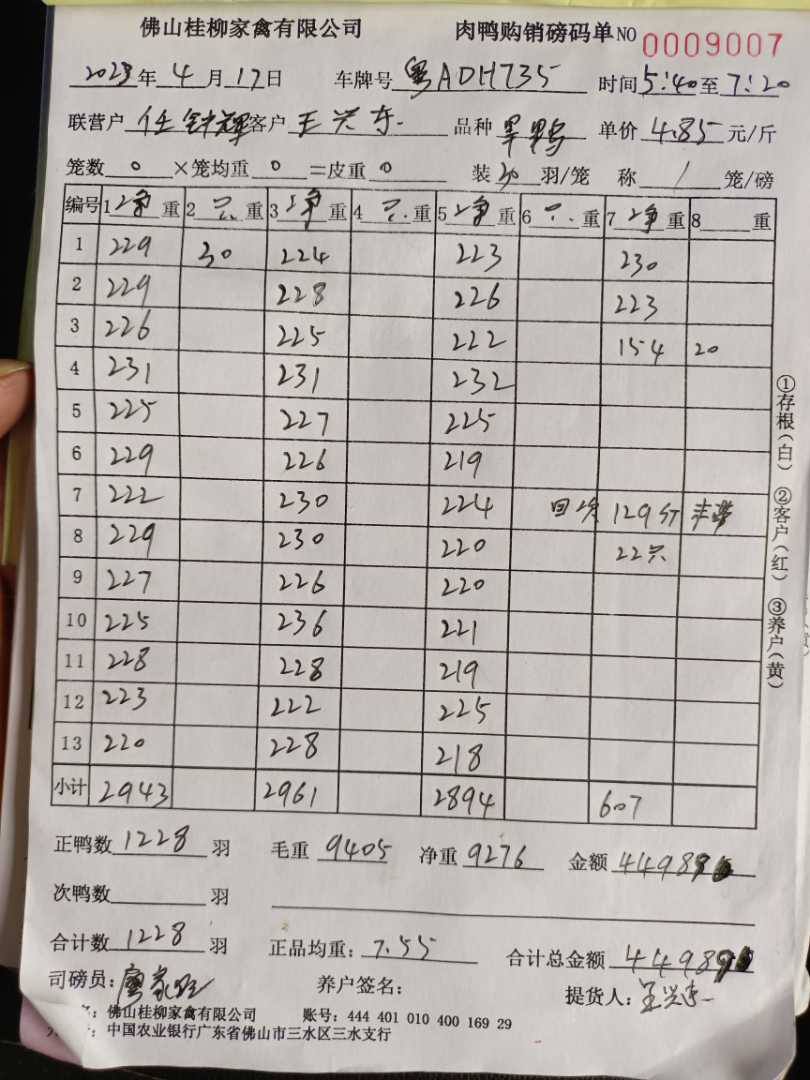 佛山桂柳家禽有限公司 肉鸭购销磅码单 NO 0009007
2023年 4月17日 车牌号 粤ADH735 时间5:40至7:20
联营户 任钟辉 客户 王兴东 品种 旱鸭 单价 4.85 元/斤
笼数 0 ×笼均重 0 =皮重 0 装 30 羽/笼 称 1 笼/磅
编号 1 净 重 2 只 重 3 净 重 4 只 重 5 净 重 6 只 重 7 净 重 8 重
1 229 30 224 223 230
2 229 228 226 223
3 226 225 222 154 20
4 231 231 232
5 225 227 225
6 229 226 219
7 222 230 224 129斤
8 229 230 220 22只
9 227 226 220
10 225 236 221
11 228 228 219
12 223 222 225
13 220 228 218
小计 2943 2961 2894 607
正鸭数 1228 羽 毛重 9405 净重 9276 金额 44989
次鸭数 羽
合计数 1228 羽 正品均重: 7.55 合计总金额 44989
司磅员: 养户签名: 提货人: 王兴东
佛山桂柳家禽有限公司 账号: 444 401 010 400 169 29
中国农业银行广东省佛山市三水区三水支行
①存根(白) ②客户(红) ③养户(黄)